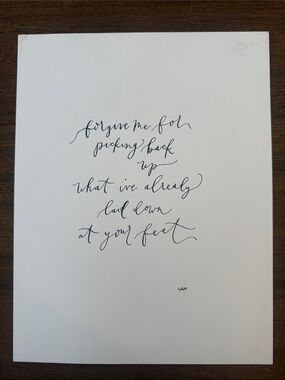 forgive me for
picking back
up
what ive already
laid down
at your feet